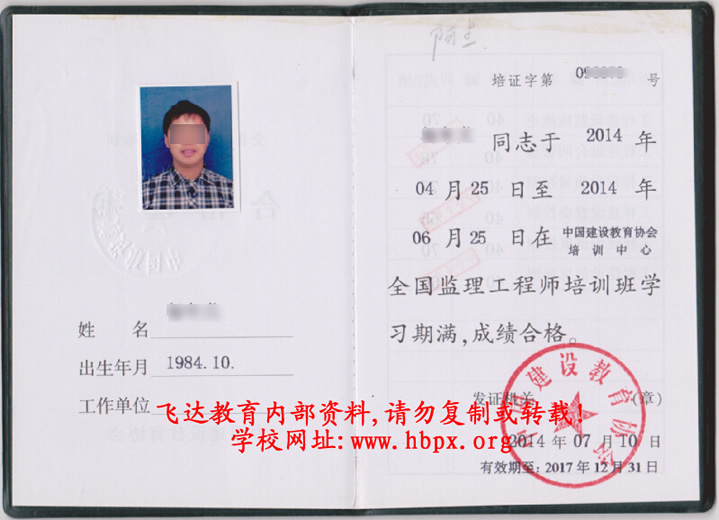 姓 名
出生年月 1984.10.
工作单位
培证字第 09 号
同志于 2014 年
04 月 25 日至 2014 年
06 月 25 日在 中国建设教育协会
培训中心
全国监理工程师培训班学
习期满,成绩合格。
建设教育协会
发证机关 (章)
2014 年 07 月 10 日
有效期至:2017 年 12 月 31 日
飞达教育内部资料,请勿复制或转载!
学校网址:www.hbpx.org